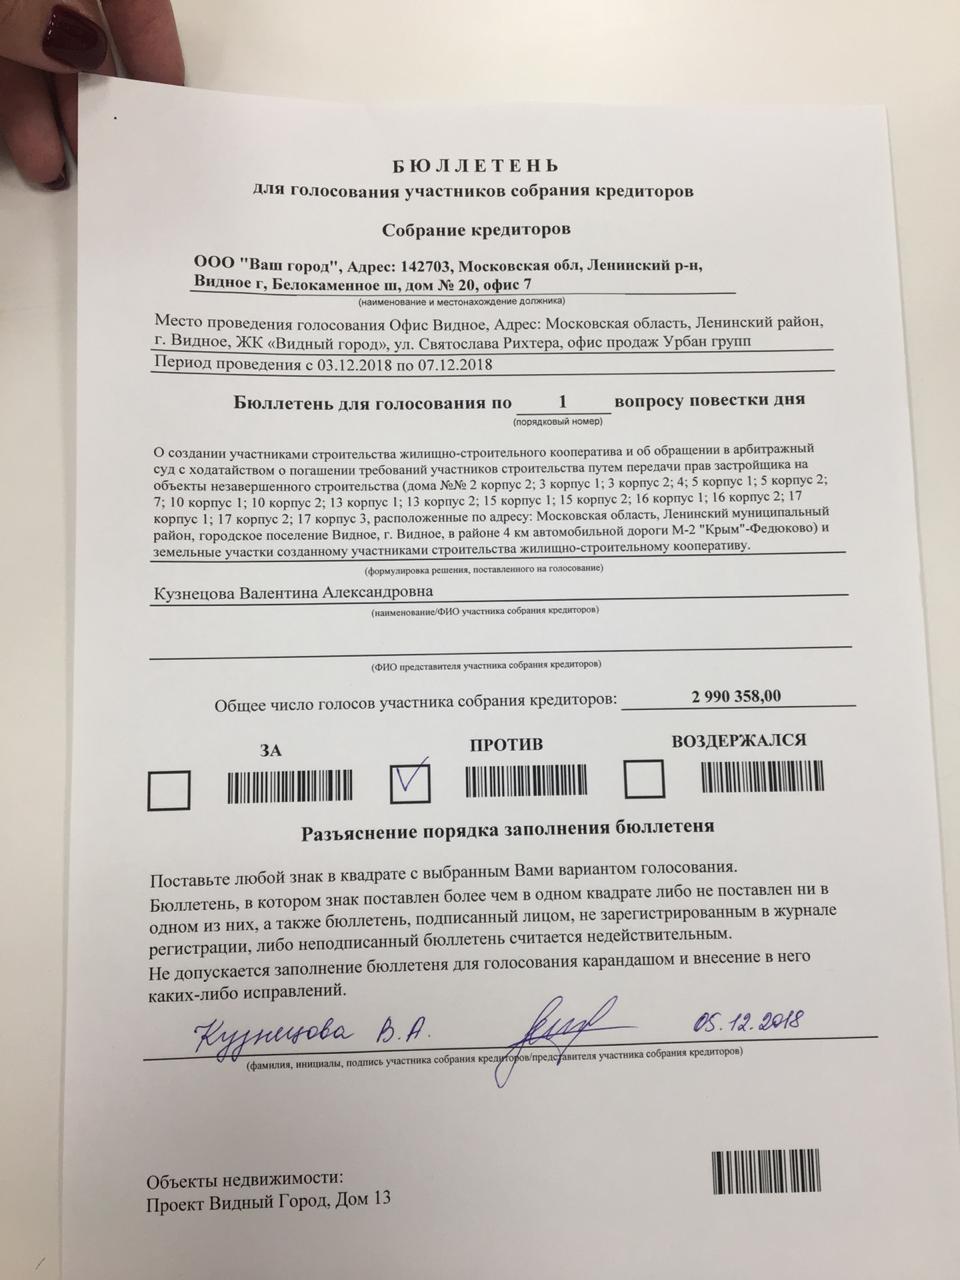 БЮЛЛЕТЕНЬ
для голосования участников собрания кредиторов
Собрание кредиторов
ООО "Ваш город", Адрес: 142703, Московская обл, Ленинский р-н,
Видное г, Белокаменное ш, дом № 20, офис 7
(наименование и местонахождение должника)
Место проведения голосования Офис Видное, Адрес: Московская область, Ленинский район,
г. Видное, ЖК «Видный город», ул. Святослава Рихтера, офис продаж Урбан групп
Период проведения с 03.12.2018 по 07.12.2018
Бюллетень для голосования по 1 вопросу повестки дня
(порядковый номер)
О создании участниками строительства жилищно-строительного кооператива и об обращении в арбитражный
суд с ходатайством о погашении требований участников строительства путем передачи прав застройщика на
объекты незавершенного строительства (дома №№ 2 корпус 2; 3 корпус 1; 3 корпус 2; 4; 5 корпус 1; 5 корпус 2;
7; 10 корпус 1; 10 корпус 2; 13 корпус 1; 13 корпус 2; 15 корпус 1; 15 корпус 2; 16 корпус 1; 16 корпус 2; 17
корпус 1; 17 корпус 2; 17 корпус 3, расположенные по адресу: Московская область, Ленинский муниципальный
район, городское поселение Видное, г. Видное, в районе 4 км автомобильной дороги М-2 "Крым"-Федюково) и
земельные участки созданному участниками строительства жилищно-строительному кооперативу.
(формулировка решения, поставленного на голосование)
Кузнецова Валентина Александровна
(наименование/ФИО участника собрания кредиторов)
(ФИО представителя участника собрания кредиторов)
Общее число голосов участника собрания кредиторов: 2 990 358,00
ЗА ПРОТИВ ВОЗДЕРЖАЛСЯ
Разъяснение порядка заполнения бюллетеня
Поставьте любой знак в квадрате с выбранным Вами вариантом голосования.
Бюллетень, в котором знак поставлен более чем в одном квадрате либо не поставлен ни в
одном из них, а также бюллетень, подписанный лицом, не зарегистрированным в журнале
регистрации, либо неподписанный бюллетень считается недействительным.
Не допускается заполнение бюллетеня для голосования карандашом и внесение в него
каких-либо исправлений.
Кузнецова В.А. 05.12.2018
(фамилия, инициалы, подпись участника собрания кредиторов/представителя участника собрания кредиторов)
Объекты недвижимости:
Проект Видный Город, Дом 13